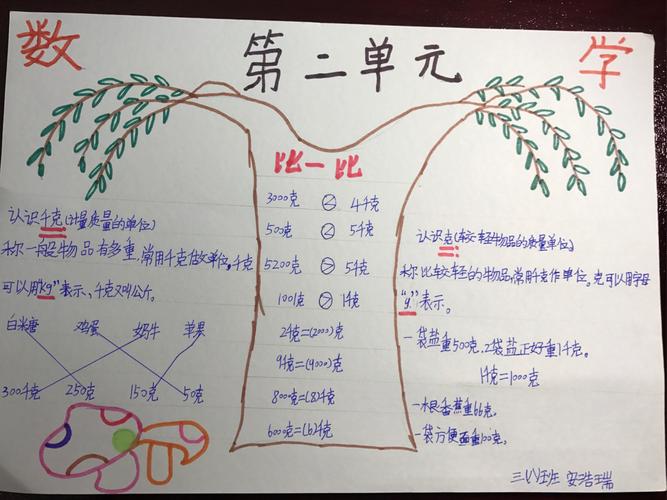 数
第二单元
学
比一比
3000克 < 4千克
500克 < 5千克
5200克 > 5千克
1001克 > 1千克
2千克=(2000)克
9千克=(9000)克
8000克=(8)千克
6000克=(6)千克
认识千克(计量质量的单位)
称一般物品有多重,常用千克做单位,千克
可以用"kg"表示、千克又叫公斤。
白米唐 鸡蛋 奶牛 苹果
300千克 250克 150克 50克
认识克(较轻物品的质量单位)
称比较轻的物品,常用千克作单位。克可以用字母
"g"表示。
一袋盐重500克,2袋盐正好重1千克。
1千克=1000克
一根香蕉重66克。
一袋方便面重100克。
三、(1)班 安浩瑞